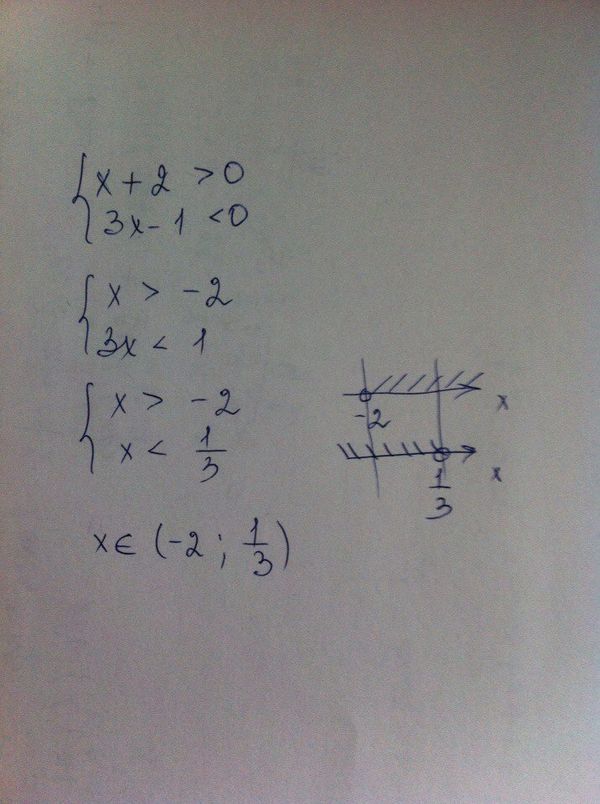 { x + 2 > 0
3x - 1 < 0
{ x > -2
3x < 1
{ x > -2
x < 1/3
-2 x
1/3 x
x ∈ (-2 ; 1/3)